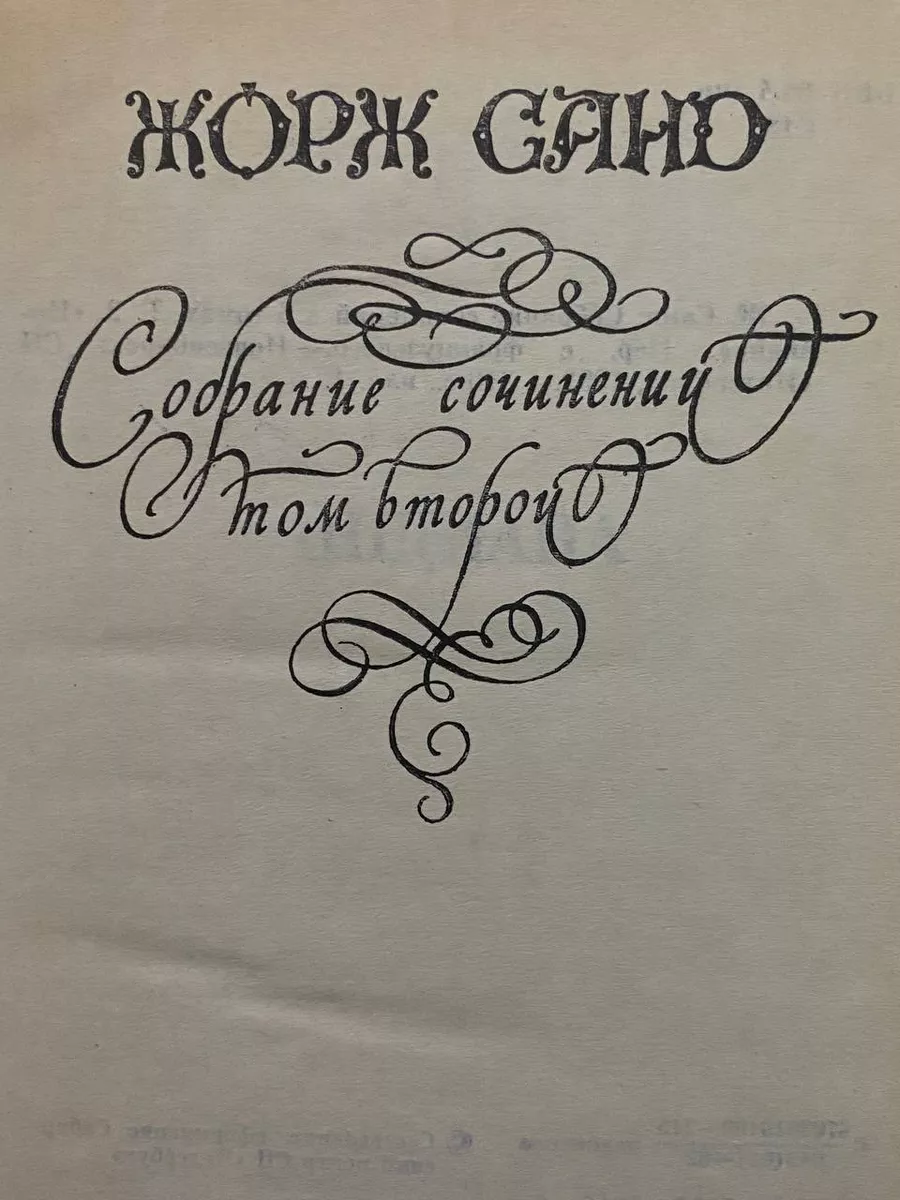 ЖОРЖ САНД
Собрание сочинений
том второй